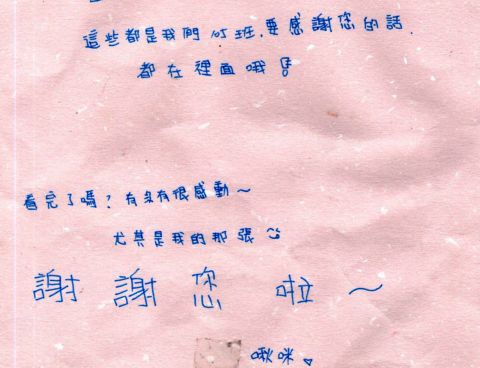 這些都是我們105班,要感謝您的話.
都在裡面哦!
看完了嗎?有沒有很感動~
尤其是我的那張
謝謝您啦~
啾咪